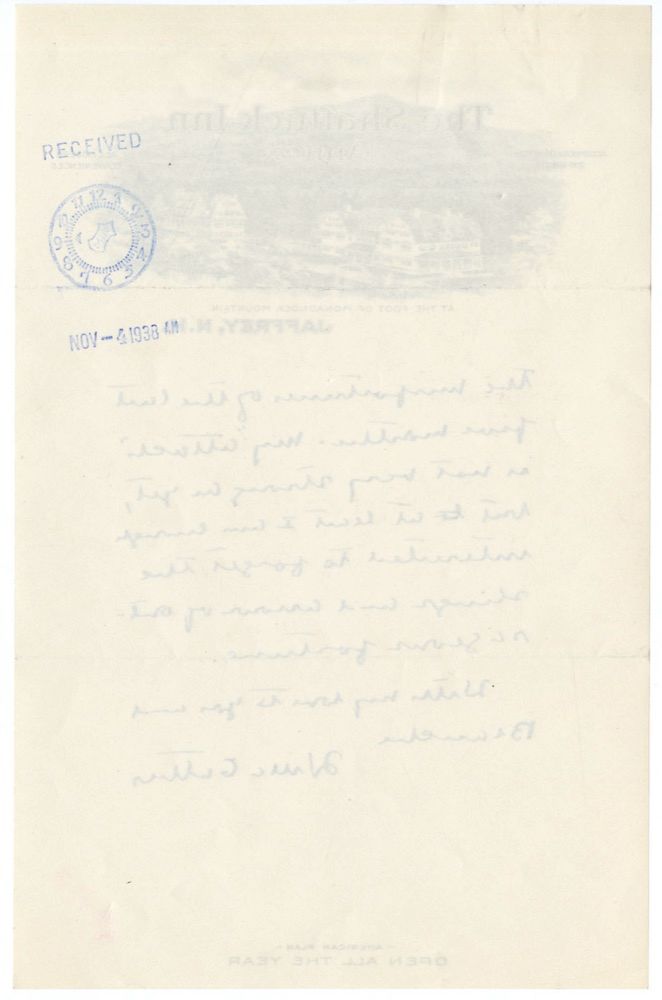 The Shattuck Inn
RECEIVED
12
6
AT THE FOOT OF MONADNOCK MOUNTAIN
JAFFREY, N.H.
NOV -4 1938 AM
the misfortunes of the last
five months. My "attack"
is not very strong as yet,
but at least I am enough
interested to forget the
slings and arrows of out-
rageous fortune.
With my love to you and
Blanche
Willa Cather
- AMERICAN PLAN -
OPEN ALL THE YEAR